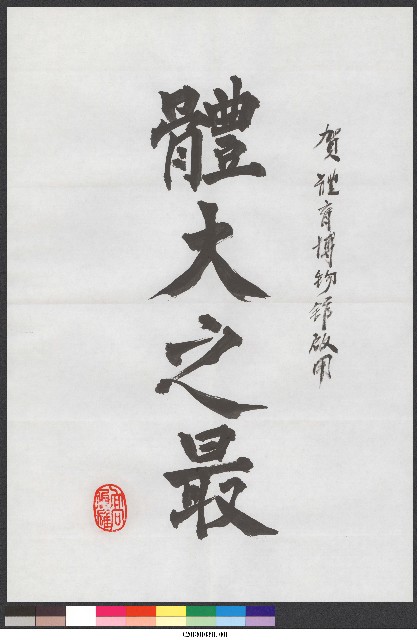 賀體育博物館啟用
體大之最